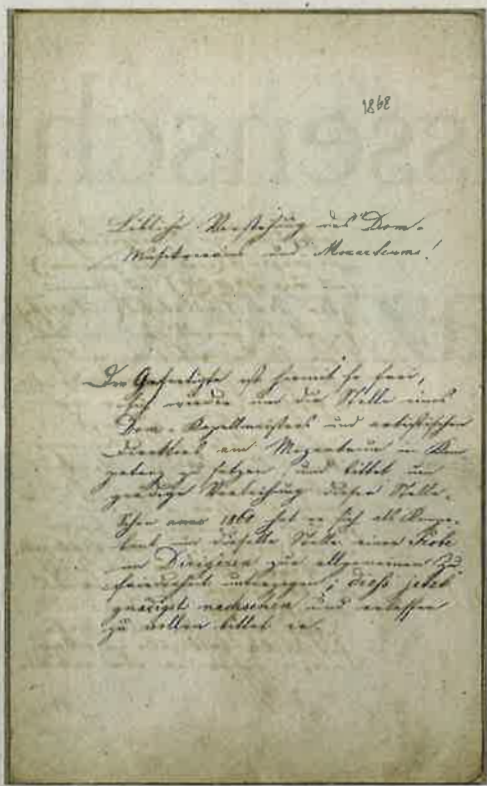 1868
Löbliche Vorstehung des Dom-
Musikvereins und Mozarteums!
Der Gefertigte ist hiermit so frei,
sich wieder um die Stelle eines
Dom-Kapellmeisters und artistischen
Direktors am Mozarteum in Kom
petenz zu setzen, und bittet um
gnädige Verleihung dieser Stelle.
Schon anno 1861 hat er sich als Kompe-
tent um dieselbe Stelle einer Probe
im Dirigieren zur allgemeinen Zu
friedenheit unterzogen; dieß jetzt
gnädigst nachsehen und erlassen
zu wollen bittet er.